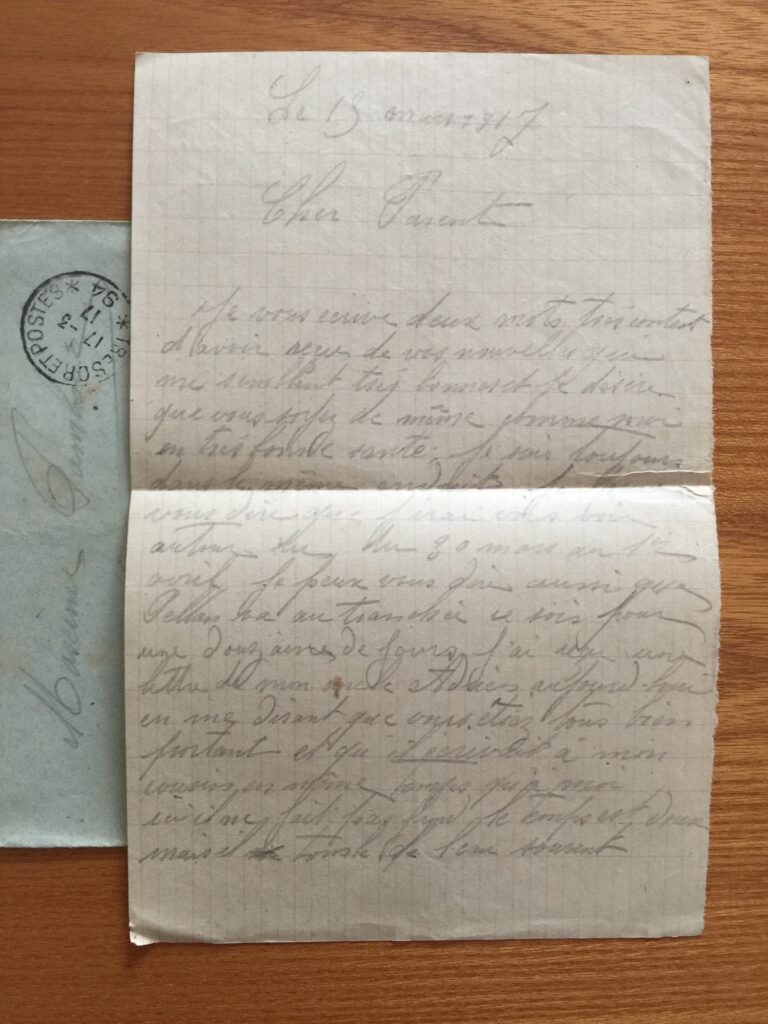 Le 15 mars 1917
Cher Parent
Je vous ecrive deux mots tres content
d'avoir reçue de vos nouvelles qui
me semblent très bonnes et je désire
que vous soyez de même comme moi
en tres bonne santé. Je suis toujours
dans le même endroit. Je
vous dire que j'irai vous voir
autour du 30 mars au 1er
avril Je peux vous dire aussi que
va au tranchée ce soir pour
une douzaine de jours j'ai une
lettre de mon oncle Adrien aujourd'hui
en me disant que vous étiez tous bien
portant et qu'il écrivait à mon
cousin en même temps qu'à moi
ici il ne fait pas froid le temps est doux
mais il tombe de l'eau souvent
* TRESOR ET POSTES * 94
17 -3
17